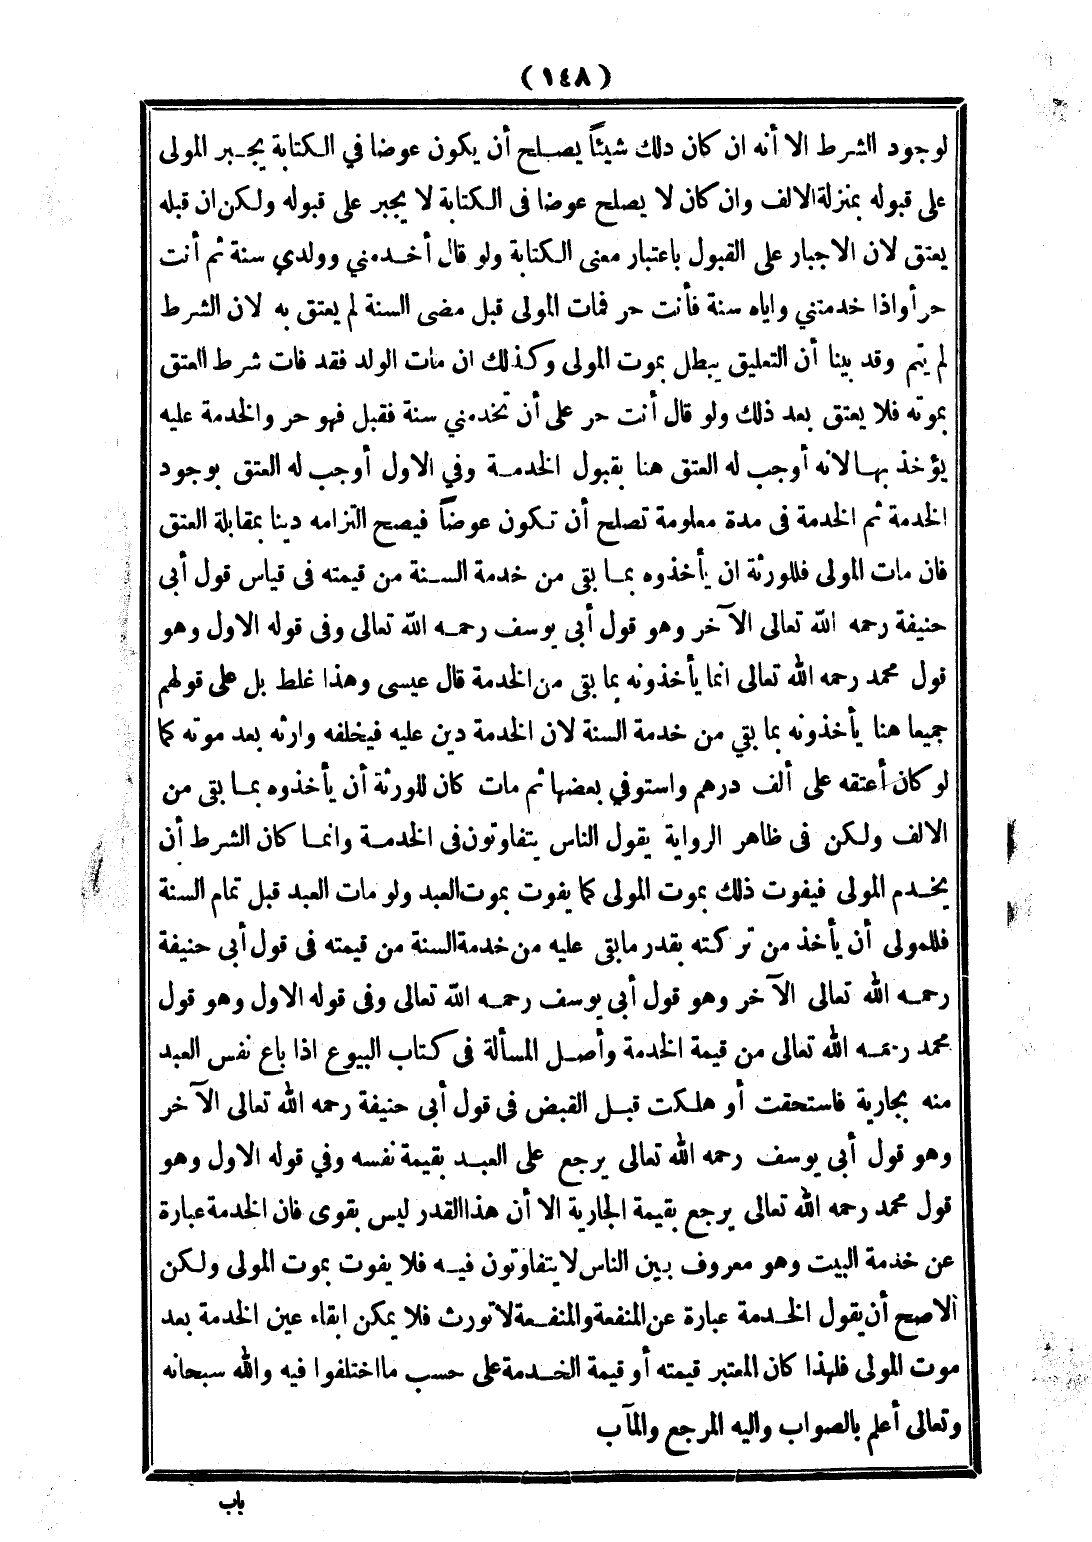 (١٤٨)
لوجود الشرط الا أنه ان كان ذلك شيئاً يصلح أن يكون عوضا في الكتابة يجبر المولى
على قبوله بمنزلة الالف وان كان لا يصلح عوضا فى الكتابة لا يجبر على قبوله ولكن ان قبله
يعتق لان الاجبار على القبول باعتبار معنى الكتابة ولو قال أخدمني وولدي سنة ثم أنت
حر أو اذا خدمتني واياه سنة فأنت حر فمات المولى قبل مضى السنة لم يعتق به لان الشرط
لم يتم وقد بينا أن التعليق يبطل بموت المولى وكذلك ان مات الولد فقد فات شرط العتق
بموته فلا يعتق بعد ذلك ولو قال أنت حر على أن تخدمني سنة فقبل فهو حر والخدمة عليه
يؤخذ بها لانه أوجب له العتق هنا بقبول الخدمة وفي الاول أوجب له العتق بوجود
الخدمة ثم الخدمة فى مدة معلومة تصلح أن تكون عوضاً فيصح التزامه دينا بمقابلة العتق
فان مات المولى فللورثة ان يأخذوه بما بقى من خدمة السنة من قيمته فى قياس قول أبى
حنيفة رحمه الله تعالى الآخر وهو قول أبي يوسف رحمه الله تعالى وفى قوله الاول وهو
قول محمد رحمه الله تعالى انما يأخذونه بما بقى من الخدمة قال عيسى وهذا غلط بل على قولهم
جميعا هنا يأخذونه بما بقي من خدمة السنة لان الخدمة دين عليه فيخلفه وارثه بعد موته كما
لو كان أعتقه على ألف درهم واستوفي بعضها ثم مات كان للورثة أن يأخذوه بما بقى من
الالف ولكن فى ظاهر الرواية يقول الناس يتفاوتون فى الخدمة وانما كان الشرط أن
يخدم المولى فيفوت ذلك بموت المولى كما يفوت بموت العبد ولو مات العبد قبل تمام السنة
فللمولى أن يأخذ من تركته بقدر ما بقى عليه من خدمة السنة من قيمته فى قول أبى حنيفة
رحمه الله تعالى الآخر وهو قول أبي يوسف رحمه الله تعالى وفى قوله الاول وهو قول
محمد رحمه الله تعالى من قيمة الخدمة وأصل المسألة فى كتاب البيوع اذا باع نفس العبد
منه بجارية فاستحقت أو هلكت قبل القبض فى قول أبي حنيفة رحمه الله تعالى الآخر
وهو قول أبى يوسف رحمه الله تعالى يرجع على العبد بقيمة نفسه وفي قوله الاول وهو
قول محمد رحمه الله تعالى يرجع بقيمة الجارية الا أن هذا القدر ليس بقوى فان الخدمة عبارة
عن خدمة البيت وهو معروف بين الناس لا يتفاوتون فيه فلا يفوت بموت المولى ولكن
الاصح أن يقول الخدمة عبارة عن المنفعة والمنفعة لا تورث فلا يمكن ابقاء عين الخدمة بعد
موت المولى فلهذا كان المعتبر قيمته أو قيمة الخدمة على حسب ما اختلفوا فيه والله سبحانه
وتعالى أعلم بالصواب واليه المرجع والمآب
باب